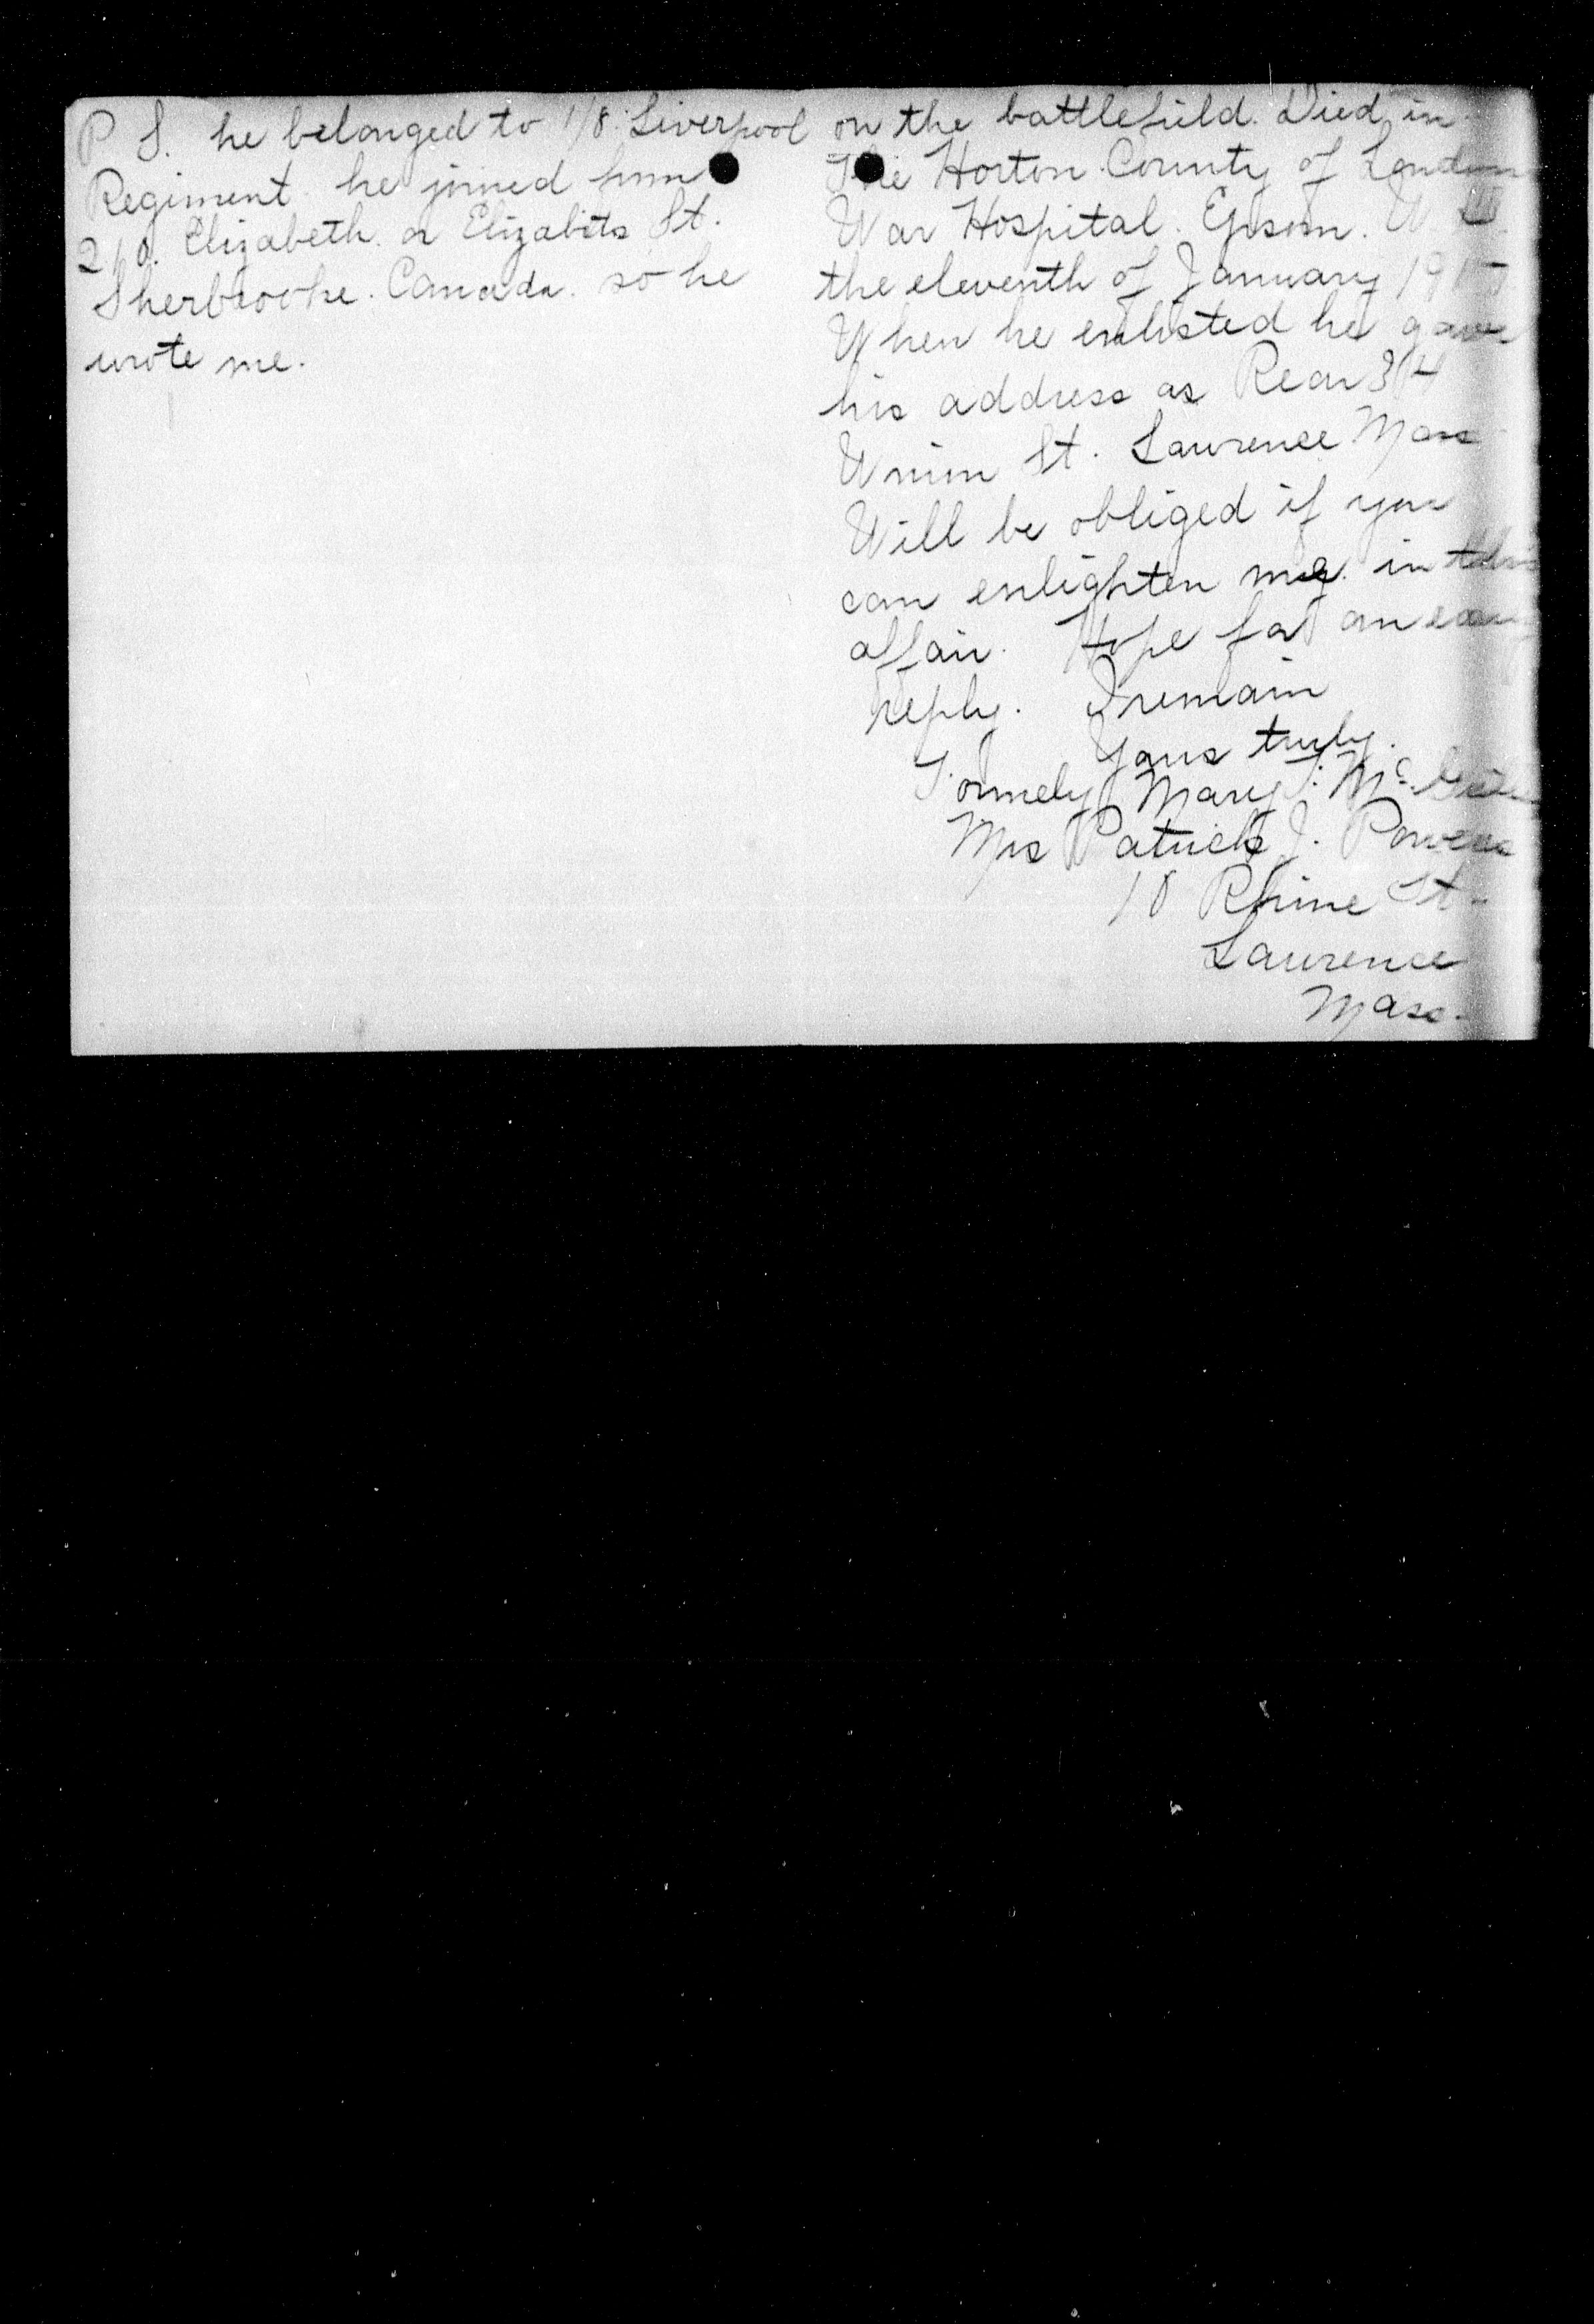 on the battlefield. Died in
The Horton County of London
War Hospital. Epsom.
the eleventh of January
When he enlisted he gave
his address as Rear 314
Union St. Lawrence Mass
Will be obliged if you
can enlighten me. in this
affair. Hope for an
reply. I remain
Yours truly.
Formely Mary
Mrs Patrick J. Powers
10 Rhine St.
Lawrence
Mass.
P S. he belonged to 1/8. Liverpool
Regiment. he joined from
Elizabeth. or St.
Sherbrooke. Canada. so he
wrote me.